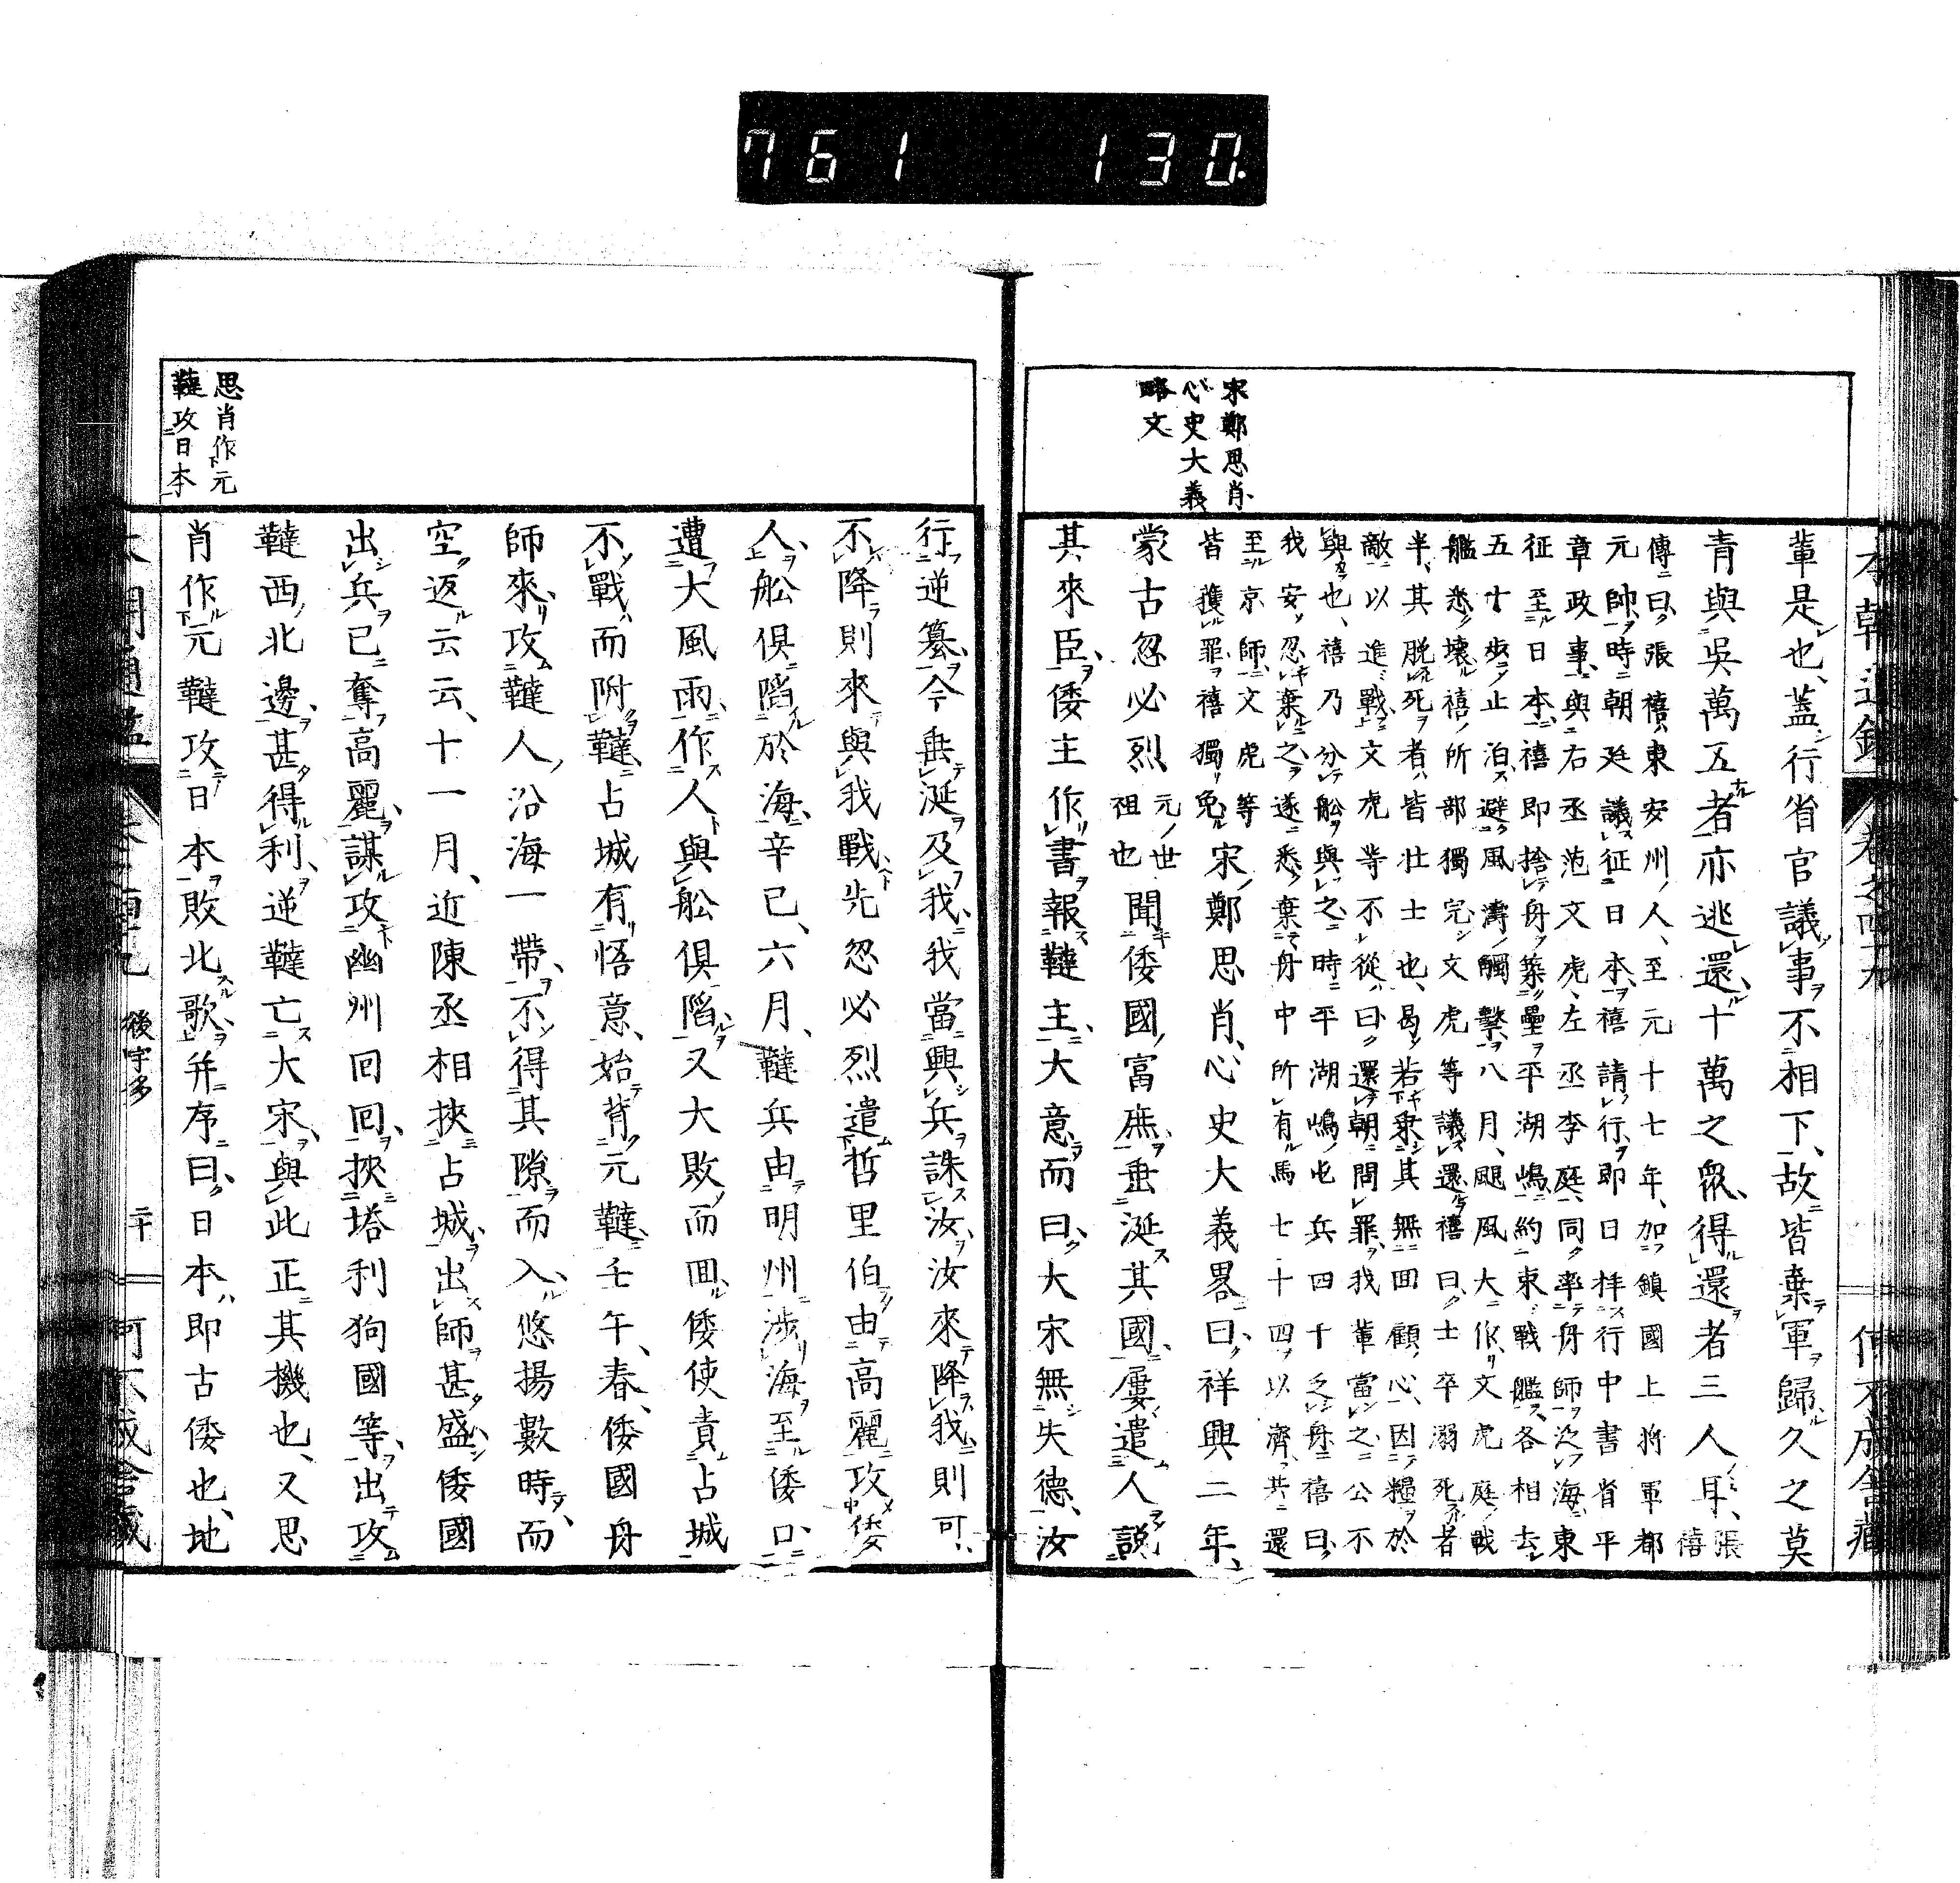 761 130.
宋鄭思肖
心史大義
略文
輩是也、蓋行省官議事不相下、故皆棄軍歸久之莫
青與吳萬五者亦逃還、十萬之衆、得還者三人耳、張禧
傳曰、張禧東安州人、至元十七年、加鎮國上將軍都
元帥、時朝廷議征日本、禧請行、即日拜行中書省平
章政事、與右丞范文虎、左丞李庭、同率舟師、次海東
征至日本、禧即捨舟築壘平湖嶋、約束戰艦、各相去
五十步止泊、避風濤觸擊、八月、颶風大作、文虎庭戰
艦悉壞、禧所部獨完、文虎等議還、禧曰、士卒溺死者
半、其脫死者、皆壯士也、曷若乘其無回顧心、因糧於
敵以進戰、文虎等不從、曰、還朝問罪、我輩當之、公不
與也、禧乃分舩與之、時平湖嶋屯兵四千乏舟、禧曰、
我安忍棄之、遂悉棄舟中所有馬七十四、以濟其還
至京師、文虎等
皆獲罪、禧獨免、宋鄭思肖、心史大義畧曰、祥興二年、
蒙古忽必烈元世祖也聞倭國富庶、垂涎其國、屢遣人說
其來臣、倭主作書報韃主、大意而曰、大宋無失德、汝
本朝通鑑 卷之四十九
行逆簒、今垂涎及我、我當興兵誅汝、汝來降我則可、
不降則來與我戰、先忽必烈遣哲里伯由高麗攻倭
人、舩俱陷於海、辛巳、六月、韃兵由明州涉海至倭口、
遭大風雨、作人與舩俱陷、又大敗而回、倭使責占城
不戰而附韃、占城有悟意、始背元韃、壬午、春、倭國舟
師來攻韃人、沿海一帶、不得其隙而入、悠揚數時、而
空返云云、十一月、近陳丞相挾占城、出師甚盛、倭國
出兵已奪高麗、謀攻幽州回回、挾塔利狗國等、出攻
韃西北邊、甚得利、逆韃亡大宋、與此正其機也、又思
肖作元韃攻日本敗北歌、并序曰、日本、即古倭也、地
思肖作元
韃攻日本
後宇多 二十